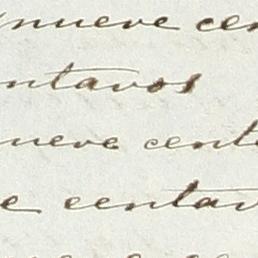 nueve cen
entavos
nueve cent
e centav